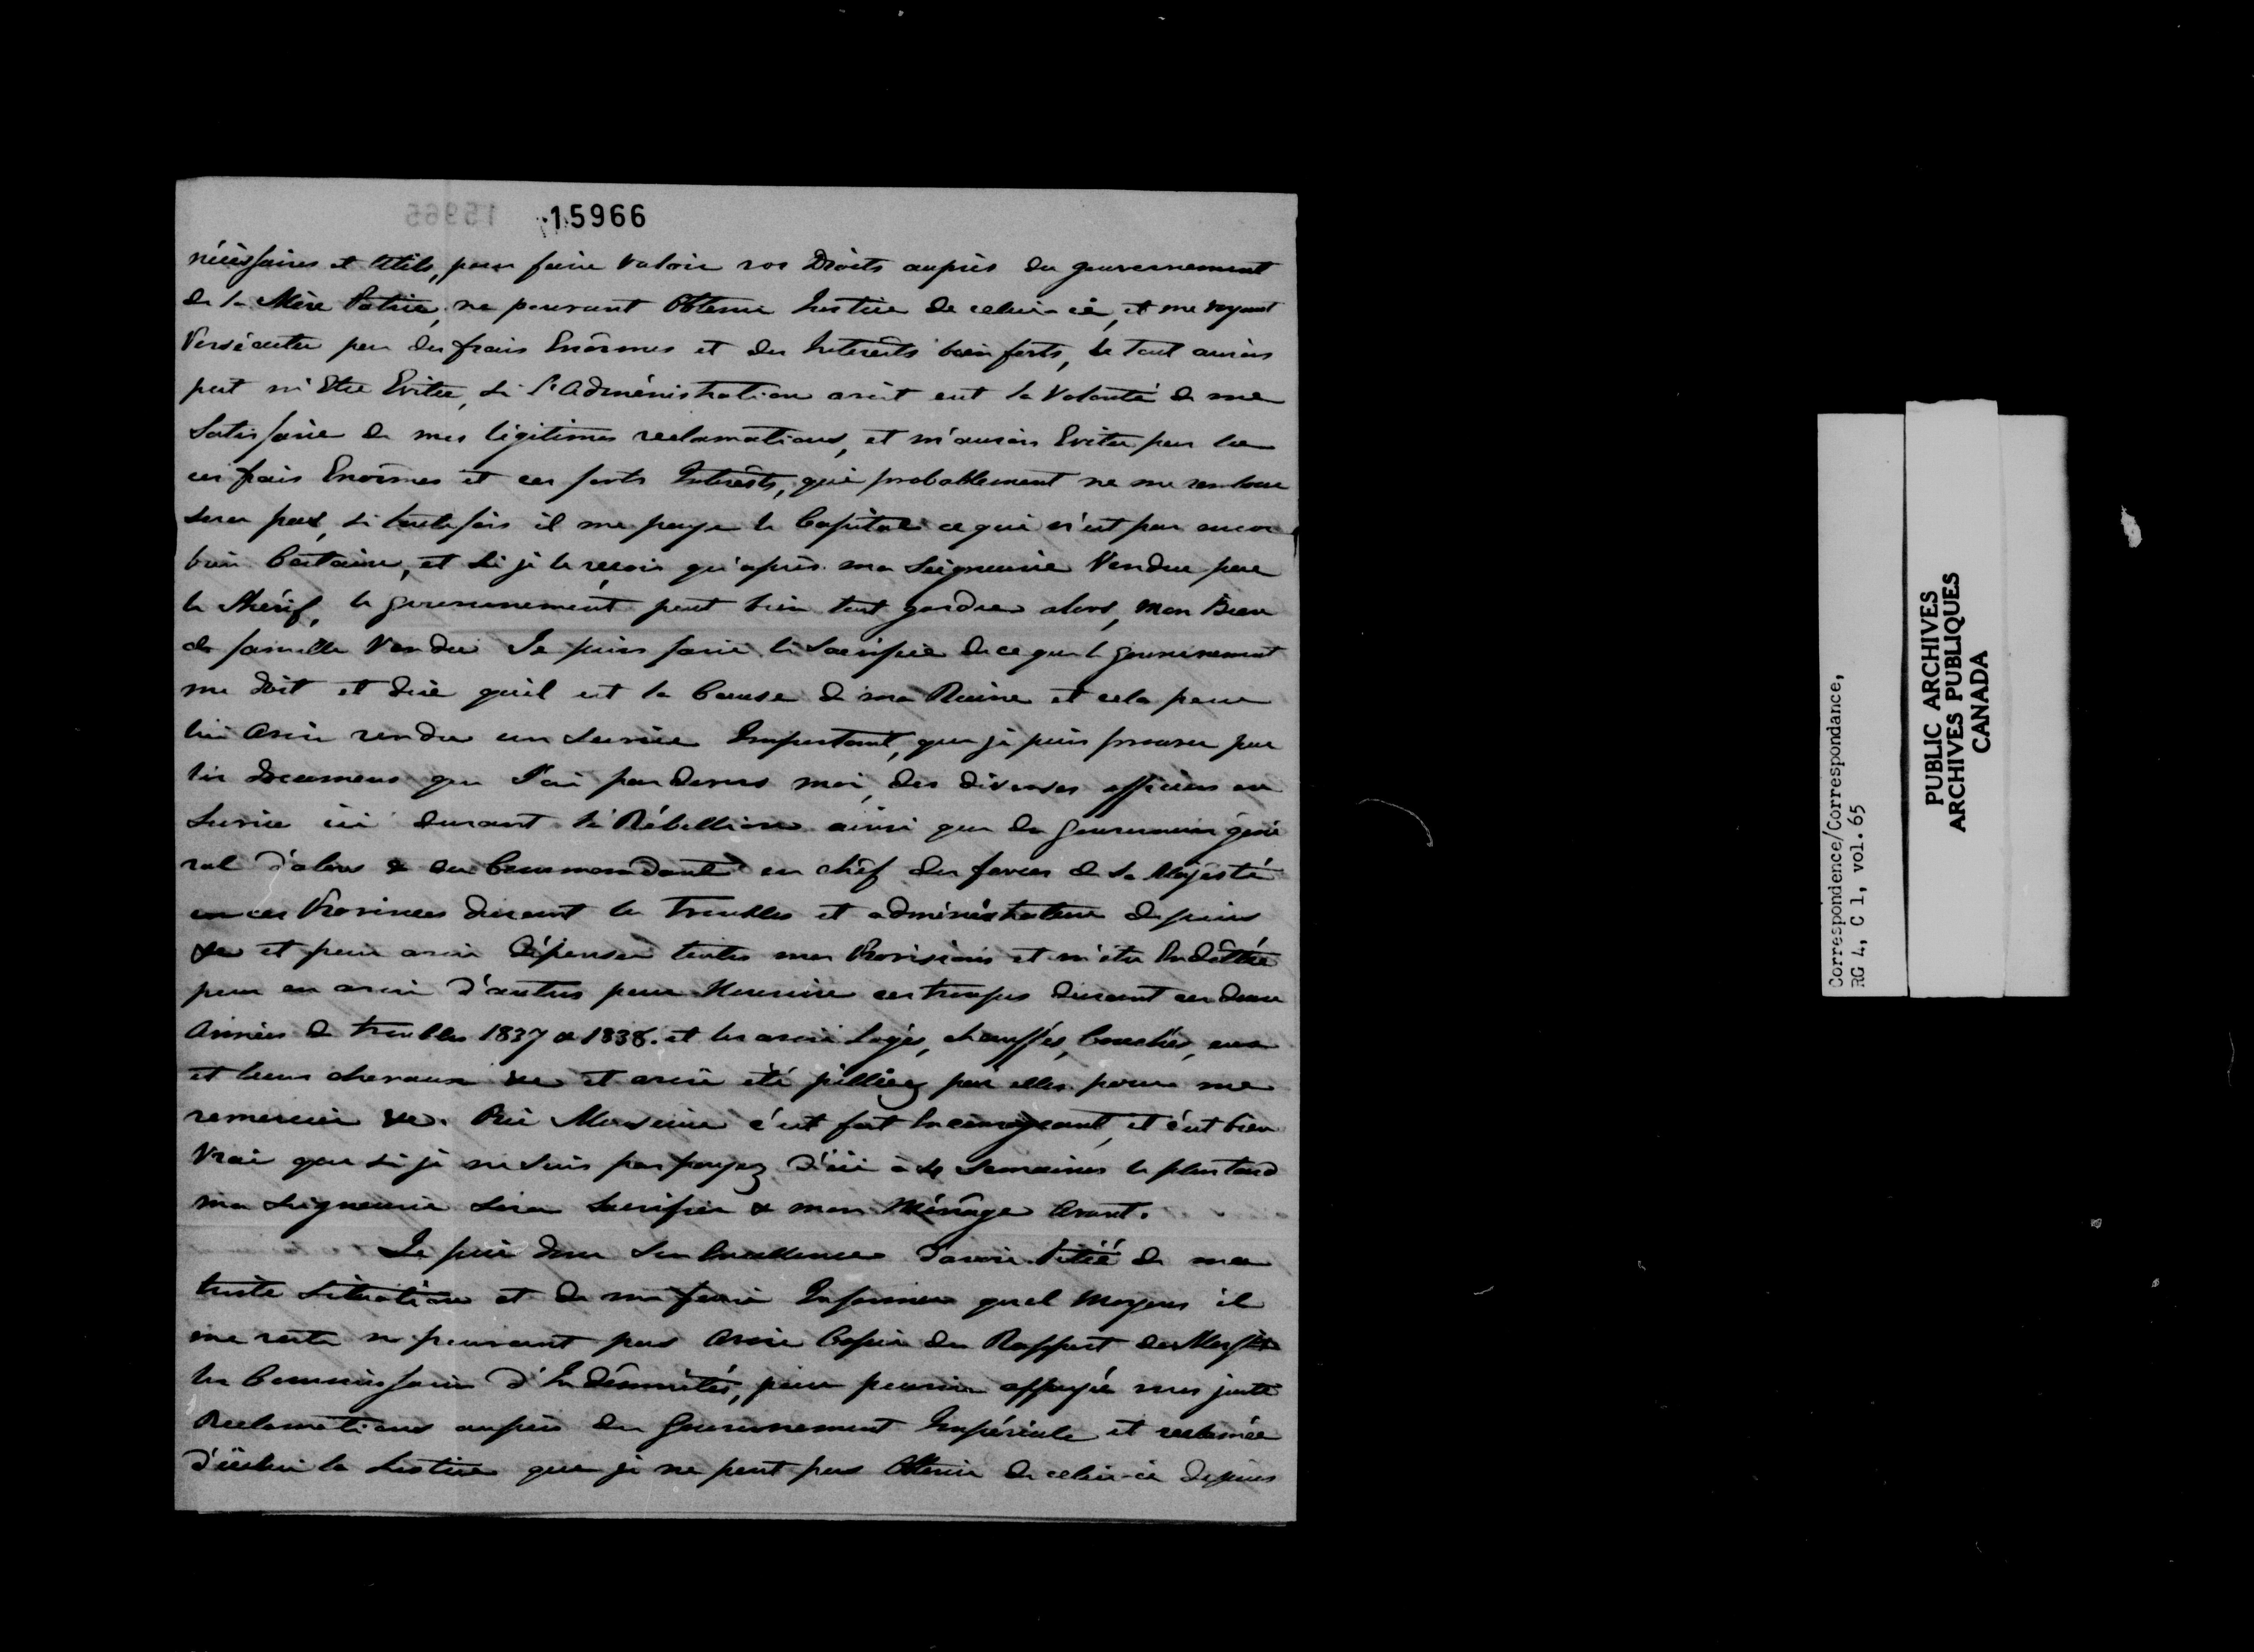 15965 15966
nécèssaires et utils, pour faire valoir vos Droits auprès du gouvernement
de la Mère Patrie, ne pouvant Obtenir Justice de celui-ci, et me voyant
Persécuter par des frais Enormes et des Interêts bien forts, le tout aurais
put m'Etre Eviter, si l'Administration avait eut la Volonté de me
Satisfaire de mes légitimes reclamations, et m'aurais Eviter par la
ces frais Enormes et ces forts Interêts, qui probablement ne me rembour
sera pas, si toutefois il me paye le Capital ce qui n'est pas encor
bien Certain, et si je le reçois qu'après ma Seigneurie Vendue par
le Shérif, le gouvernement peut bien tout garder alors, mon Bien
de famille Vendue Je puis faire le Sacrifice de ce que le gouvernement
me doit et dire quil est la Cause de ma Ruine et cela pour
lui Avoir rendu un Service Important, que je puis prouver par
les documens que J'ai par devers moi, des diverses officiers en
Service ici durant la Rébellion ainsi que du gouverneur géné
ral d'alors & du Commandant en chéf des forces de Sa Majesté
en ces Provinces durant les Troubles et administrateur depuis
&c et pour avoir dépensée toutes mes Provisions et m'être Endettée
pour en avoir d'autres pour Nourrire ces troupes durant ces deux
Années de troubles 1837 & 1838. et les avoir Logés, chauffés, Couchés, eux
et leurs chevaux &c et avoir été pilliez par elles pour me
remercier &c. Oui Monsieur c'est fort Encourageant, et c'est bien
Vrai que si je ne suis pas payez d'ici à 4 Semaines le plus tard
ma Seigneurie sera Sacrifier & mon Ménâge Avant.
Je prie donc Son Excellence d'avoir Pitié de ma
triste Situation et de me faire Informer quel Moyens il
me reste ne pouvant pas Avoir Copie du Rapport des Mess
les Commissaires d'Indémnités, pour pouvoir appuyée mes juste
Reclamations auprès du Gouvernement Impériale et reclamée
d'icelui la Justice que je ne peut pas Obtenir de celui-ci depuis
Correspondence/Correspondance,
RG 4, C 1, vol. 65
PUBLIC ARCHIVES
ARCHIVES PUBLIQUES
CANADA